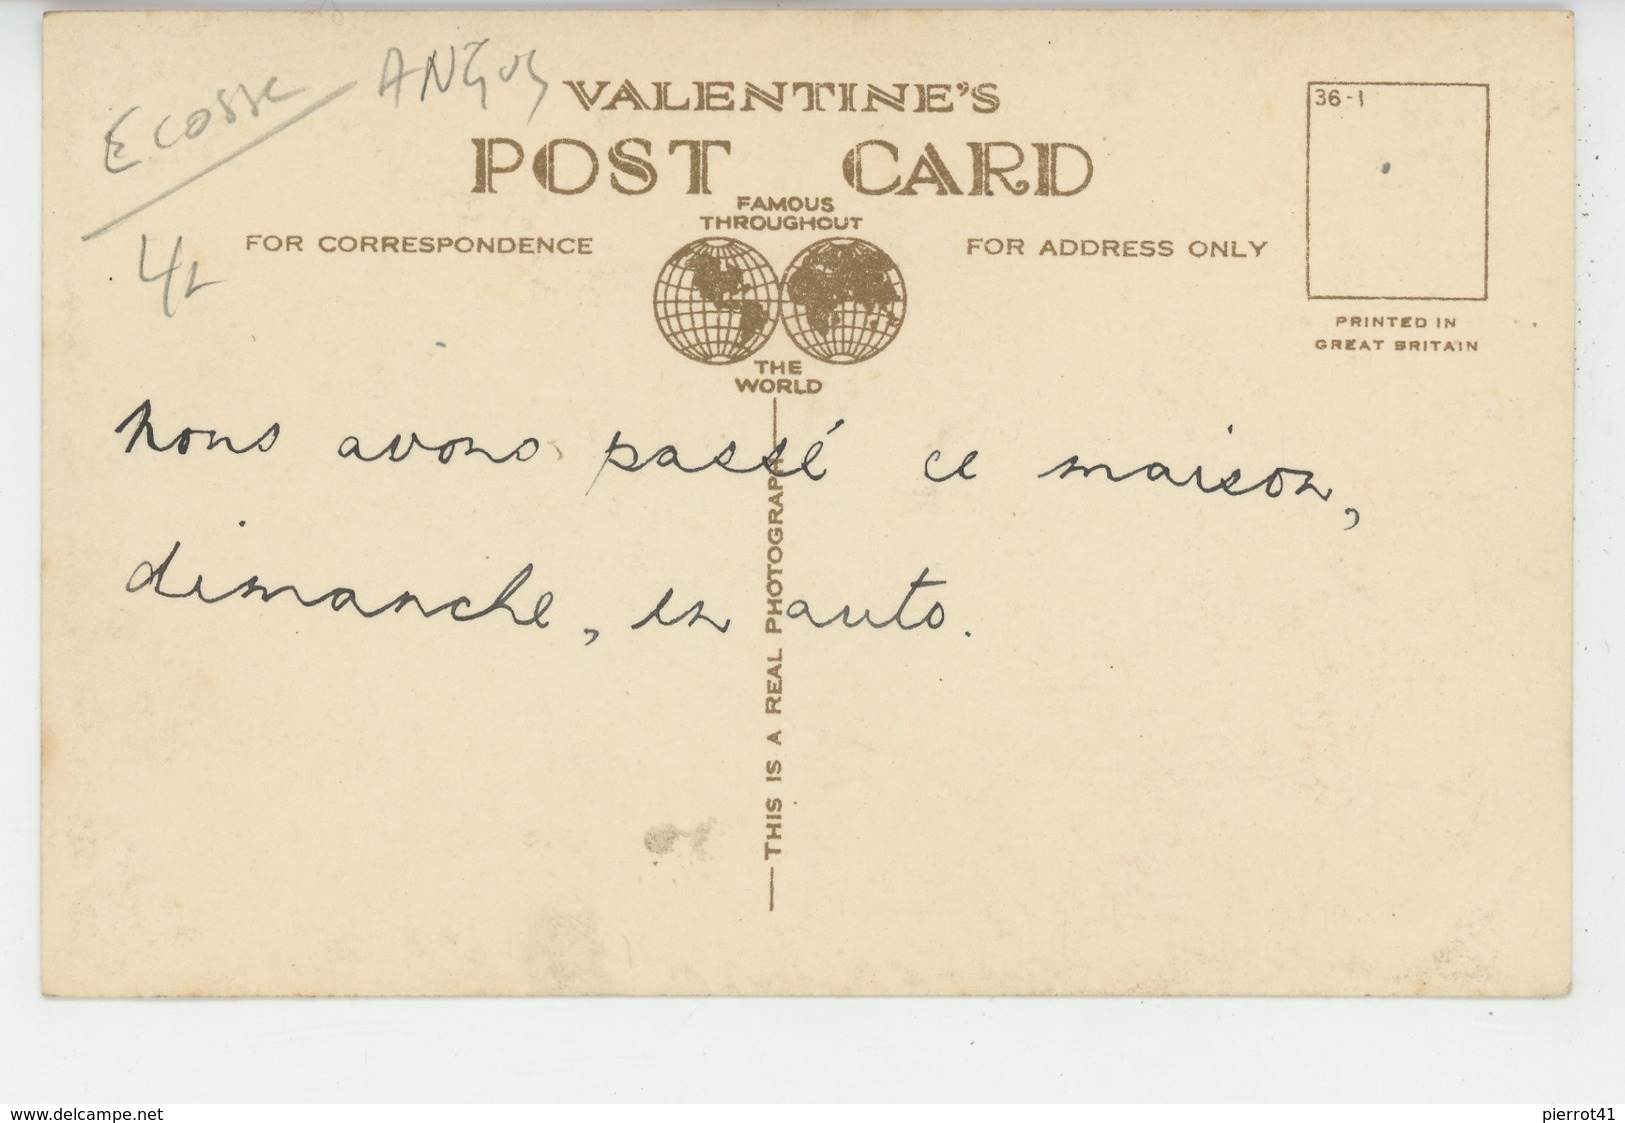 Ecosse ANGUS
VALENTINE'S
POST CARD
FAMOUS
THROUGHOUT
THE
WORLD
FOR CORRESPONDENCE
FOR ADDRESS ONLY
36-1
PRINTED IN
GREAT BRITAIN
nous avons passé ce maison,
dimanche, en auto.
THIS IS A REAL PHOTOGRAPH
www.delcampe.net
pierrot41